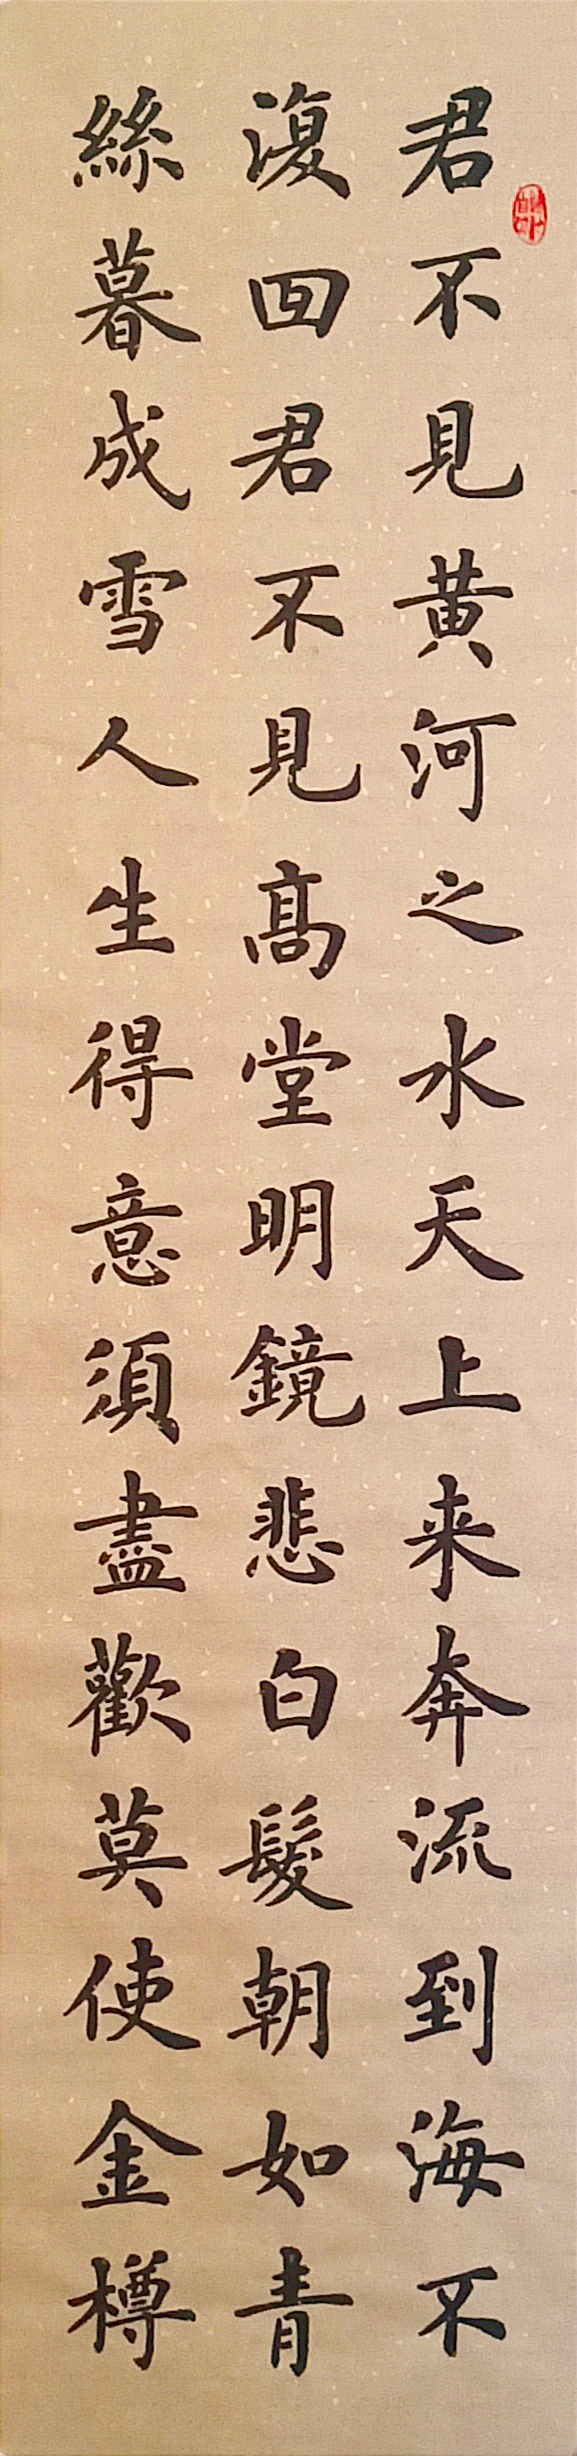 君不見黄河之水天上来奔流到海不
復回君不見高堂明鏡悲白髮朝如青
絲暮成雪人生得意須盡歡莫使金樽